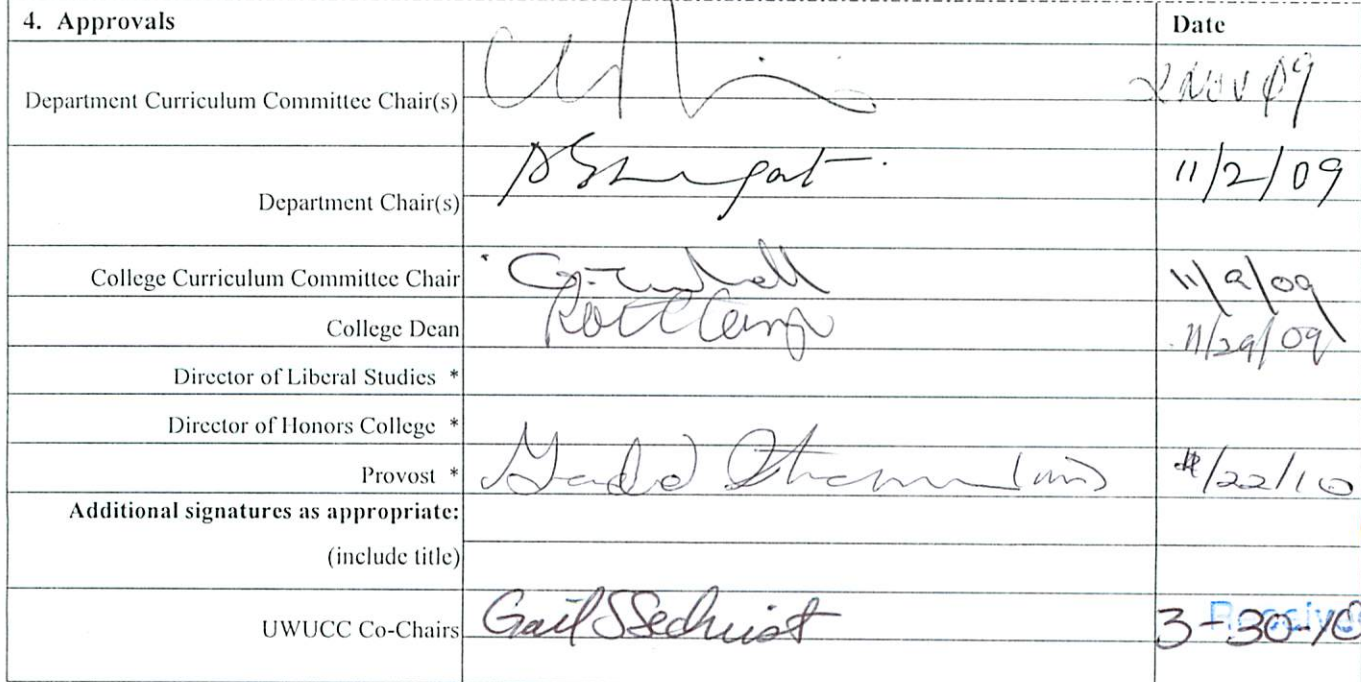 4. Approvals Date
Department Curriculum Committee Chair(s) 2 Nov 09
Department Chair(s) 11/2/09
College Curriculum Committee Chair 11/9/09
College Dean 11/29/09
Director of Liberal Studies *
Director of Honors College *
Provost * /22/10
Additional signatures as appropriate:
(include title)
UWUCC Co-Chairs Gail S Sechrist 3-30-10